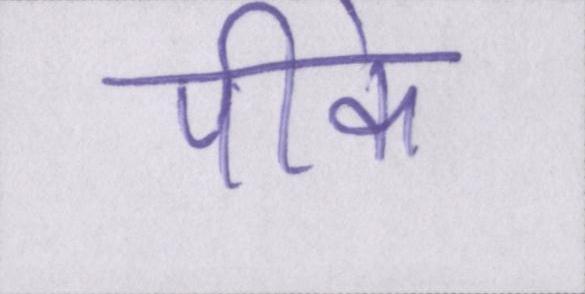 पीके